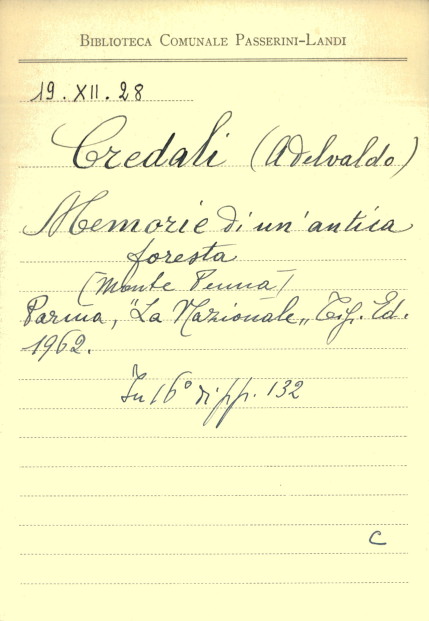 BIBLIOTECA COMUNALE PASSERINI-LANDI
19.XII.28
Credali (Adelvaldo)
Memorie di un'antica
foresta
(Monte Penna)
Parma, "La Nazionale„ Tip. Ed.
1962.
In 16° di pp. 132
C